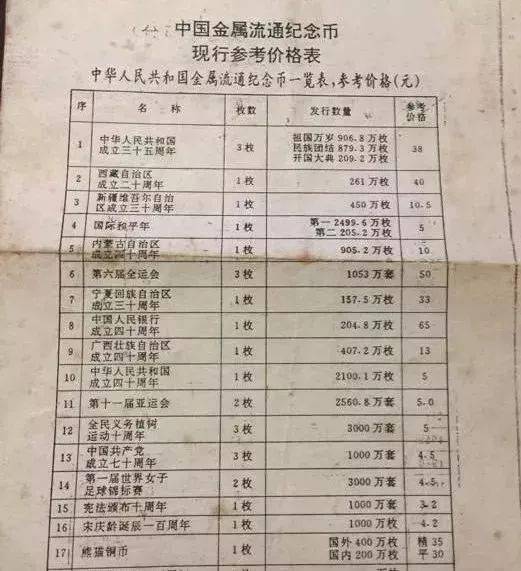 中国金属流通纪念币
现行参考价格表
中华人民共和国金属流通纪念币一览表,参考价格(元)
序 名称 枚数 发行数量 参考价格
1 中华人民共和国成立三十五周年 3枚 祖国万岁 906.8万枚 民族团结 879.3万枚 开国大典 209.2万枚 38
2 西藏自治区成立二十周年 1枚 261万枚 40
3 新疆维吾尔自治区成立三十周年 1枚 450万枚 10.5
4 国际和平年 1枚 第一 2499.6万枚 第二 205.2万枚 5
5 内蒙古自治区成立四十周年 1枚 905.2万枚 10
6 第六届全运会 3枚 1053万套 50
7 宁夏回族自治区成立三十周年 1枚 157.5万枚 33
8 中国人民银行成立四十周年 1枚 204.8万枚 65
9 广西壮族自治区成立四十周年 1枚 407.2万枚 13
10 中华人民共和国成立四十周年 1枚 2100.1万枚 5
11 第十一届亚运会 2枚 2560.8万套 5.0
12 全民义务植树运动十周年 3枚 3000万套 5
13 中国共产党成立七十周年 3枚 1000万套 4.5
14 第一届世界女子足球锦标赛 2枚 3000万套 4.5
15 宪法颁布十周年 1枚 1000万枚 3.2
16 宋庆龄诞辰一百周年 1枚 1000万枚 4.2
17 熊猫铜币 1枚 国外 400万枚 国内 200万枚 精 35 平 30